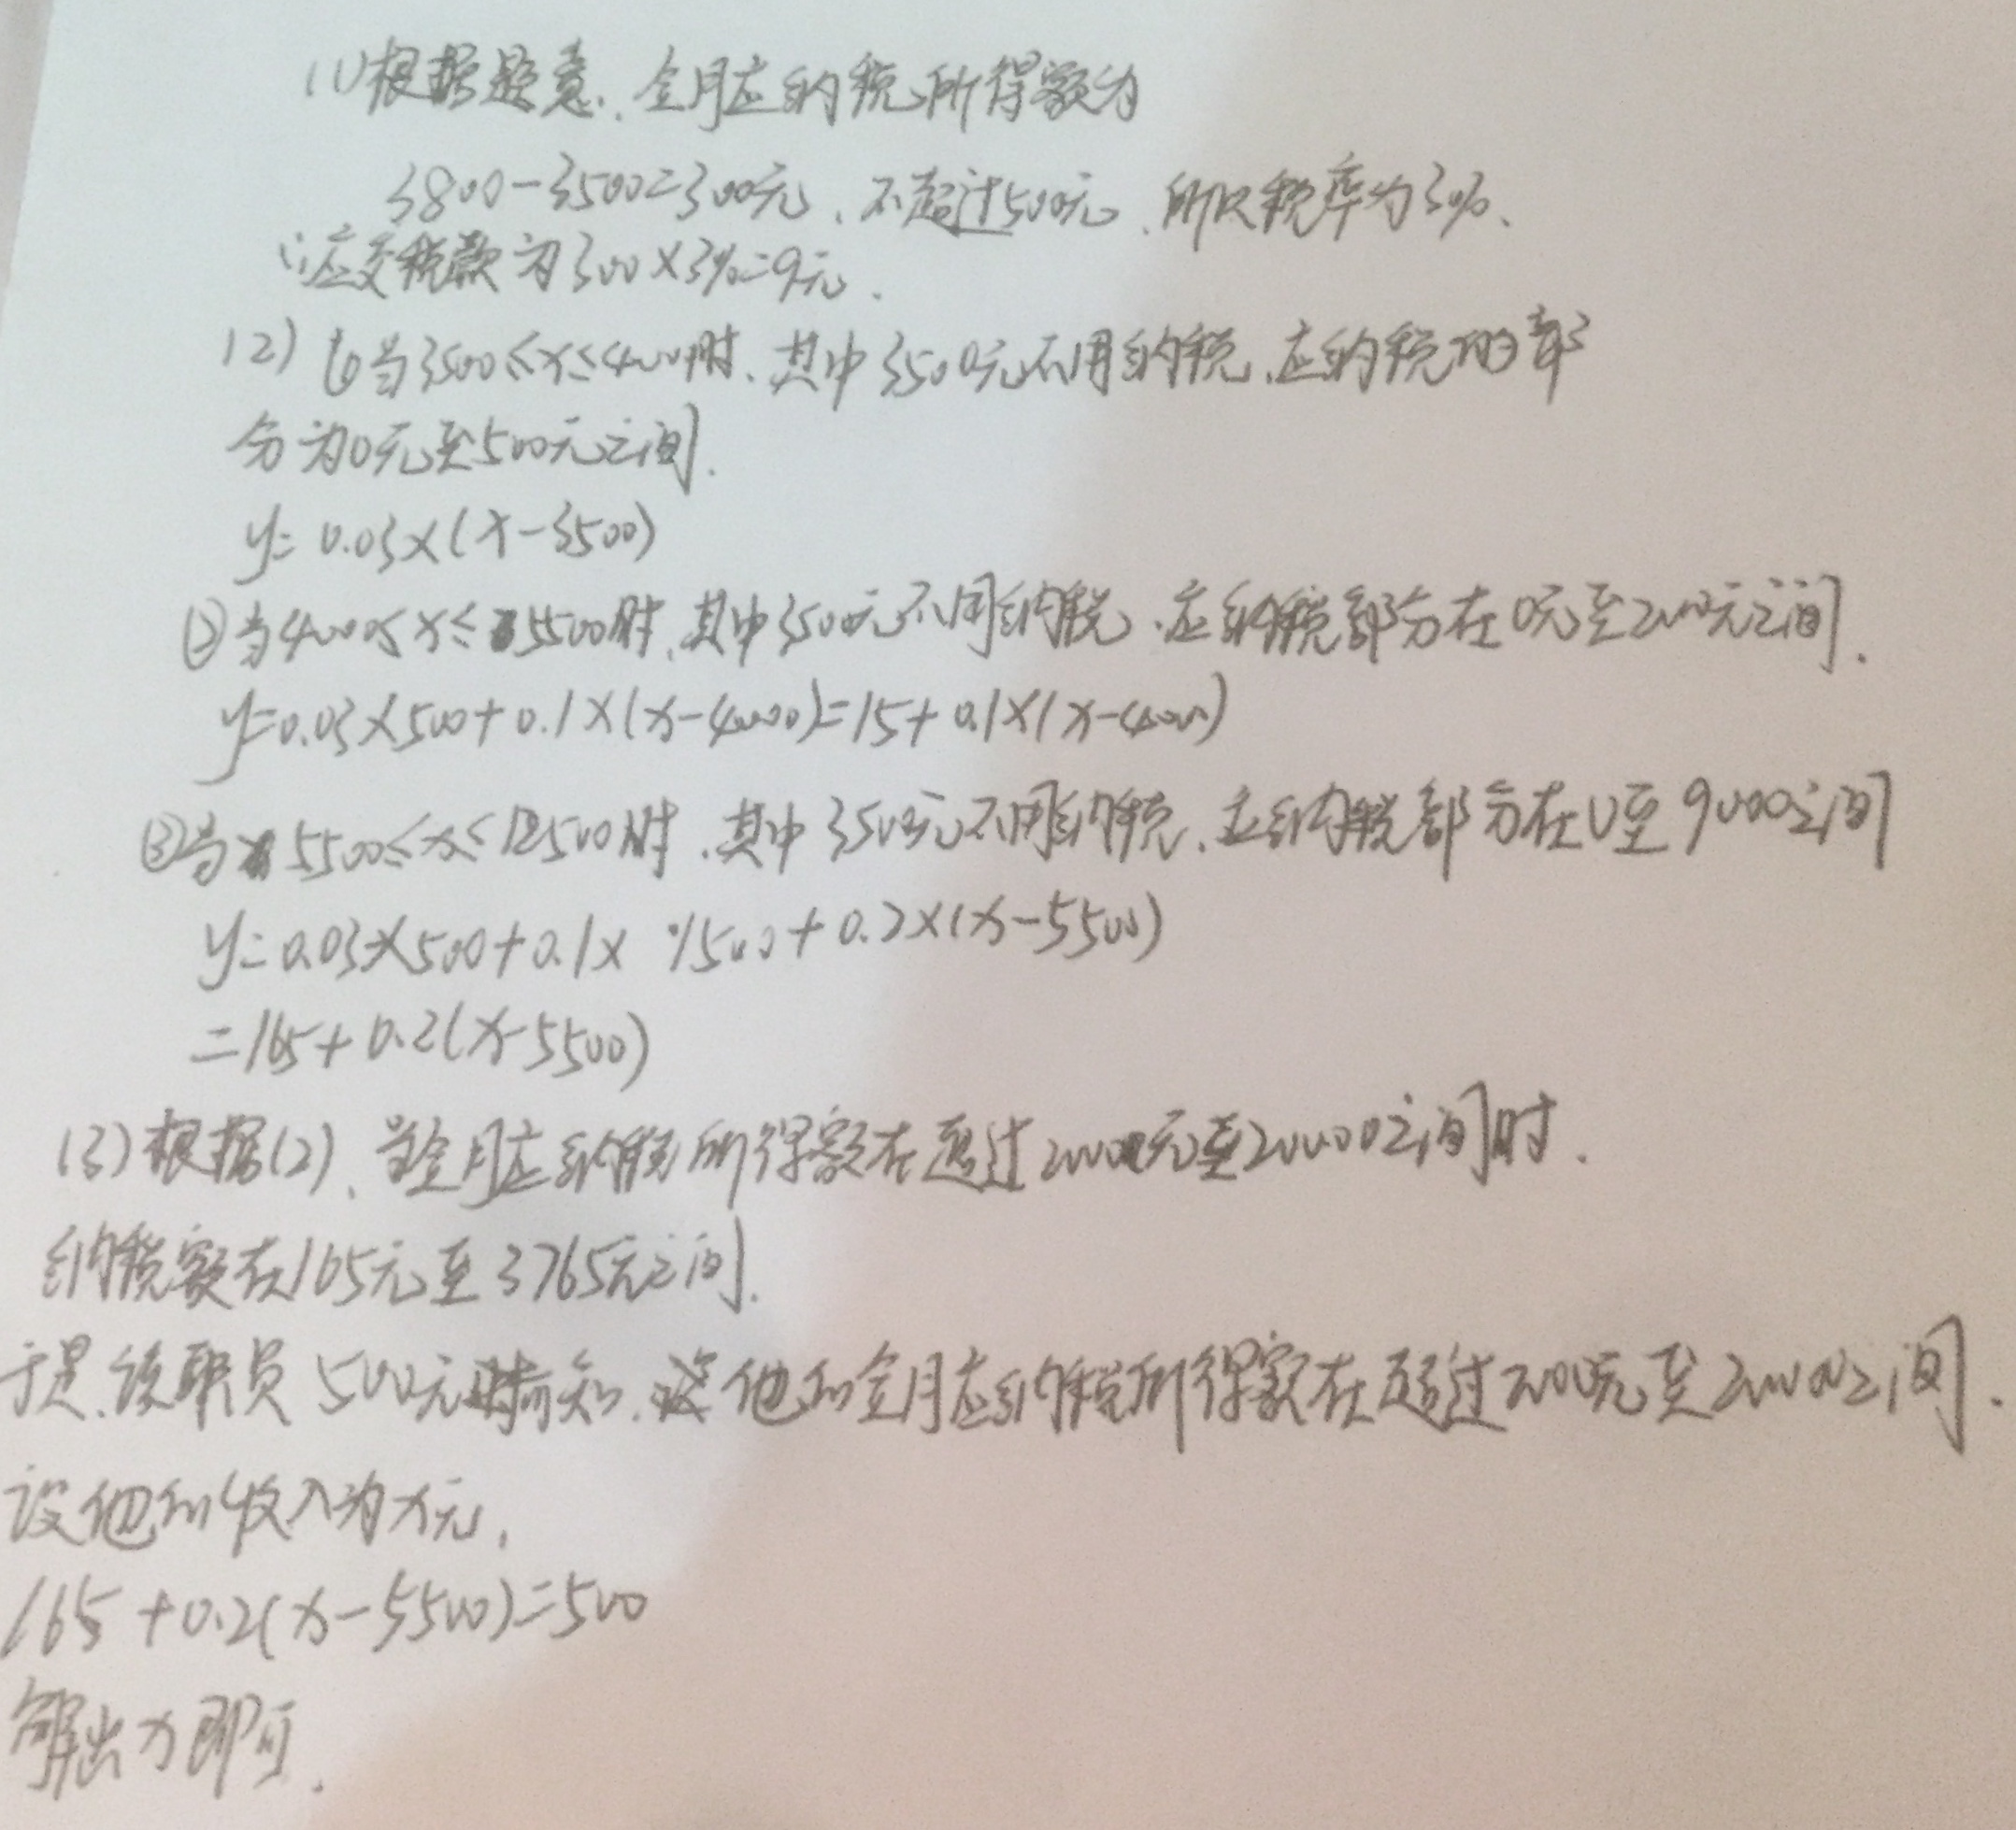 (1)根据题意,全月应纳税所得额为
3800-3500=300元,不超过500元,所以税率为3%.
∴应交税款为300×3%=9元.
(2)①当3500≤x≤4000时,其中3500元不用纳税,应纳税的部
分为0元至500元之间.
y=0.03×(x-3500)
②当4000≤x≤5500时,其中3500元不用纳税,应纳税部分在0元至2000元之间.
y=0.03×500+0.1×(x-4000)=15+0.1×(x-4000)
③当5500≤x≤12500时,其中3500元不用纳税,应纳税部分在0至9000之间
y=0.03×500+0.1×1500+0.2×(x-5500)
=165+0.2(x-5500)
(3)根据(2),当全月应纳税所得额在超过2000元至20000之间时.
纳税额在165元至3765元之间.
于是,该职员500元可知,他的全月应纳税所得额在超过2000元至20000之间.
设他的收入为x元,
165+0.2(x-5500)=500
解出x即可.